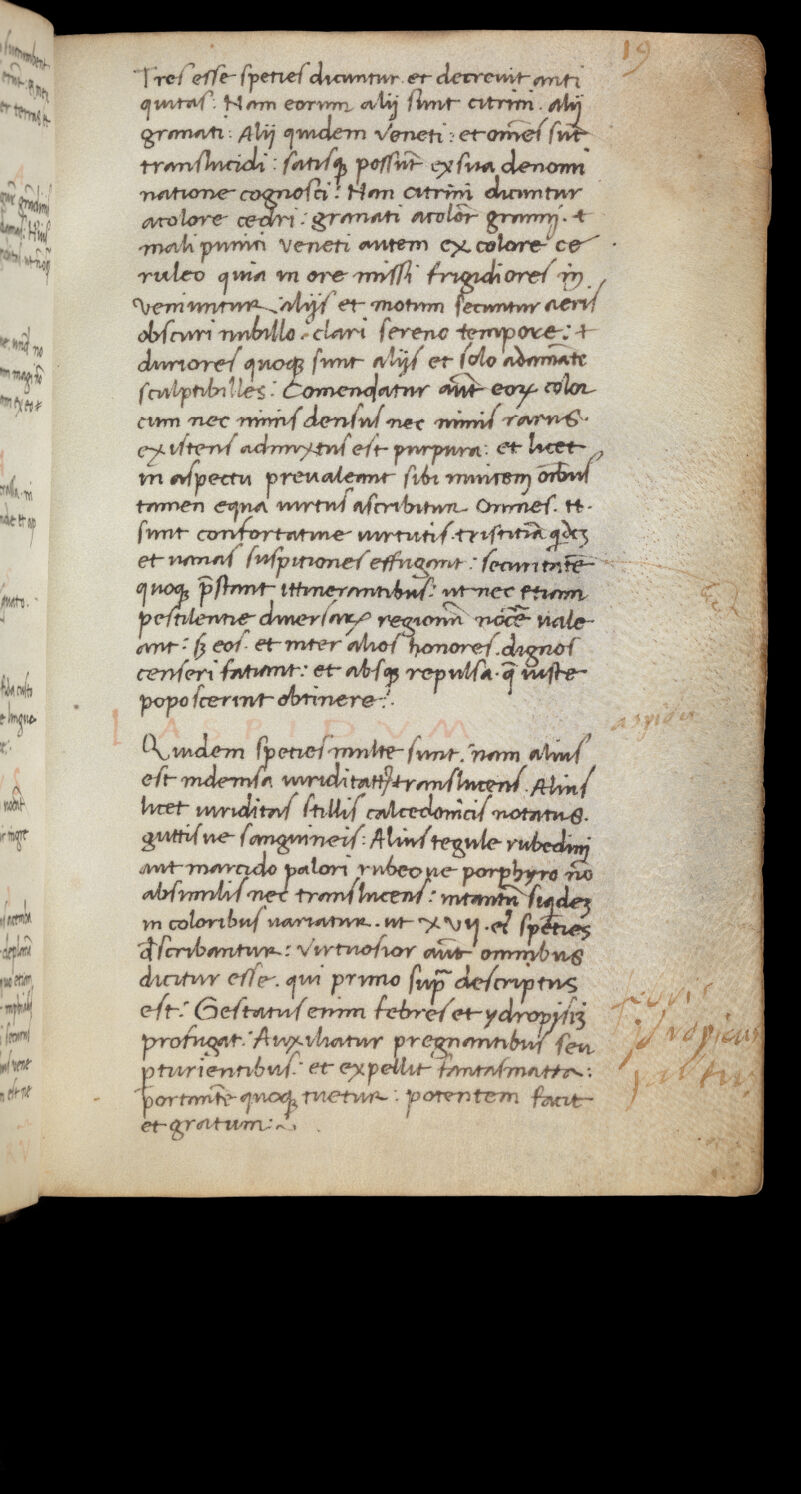 19
Tres esse speties dicuntur. et decrevit anti
quitas: Nam eorum alij sunt citrini. alij
granati: Alij quidem Veneti: et om̅es su̅t
translucidi: satisqꝫ possu̅t ex sua denomi
natione cognosci: Nan citrini dicuntur
acolore cedri: granati acolor̅ granij. &
mali punici veneti autem ex colore ce
ruleo quia in ore missi frigidiores in
veniuntur alijs et motum secuntur aeris
obscuri nubillo. clari sereno tempore: &
duriores quoqꝫ sunt alijs et solo adama̅te
sculptibilles: Comendatur au̅t eoꝝ color
cum nec nimis densus nec nimis rarus.
existens admixtus est purpura: et licet
in aspectu prevaleant sibi invicem om̅bus
tamen equa virtus ascribitur Omnes. tt.
sunt confortative virtutis. tristitia̅ qꝫ
et vanas suspitiones effugant: securitate̅
quoqꝫ p̅stant ittinerantibus: ut nec etiam
pestilentie diversaꝝ regionu̅ noce̅ vale
ant: sꝫ eos. et inter alios honores. dignos
censeri fatiant: et absqꝫ repulsa. q̅ iuste
poposcerint obtinere:
IASPIDVM
aspidis
Quidem speties multe sunt. nam alius
est indemsa viriditatꝭ translucens. Alius
licet viriditas stillis calcedonicis notatus.
guttis ve sanguineis: Alius tegule rubedini
aut marcido palori rubeo ve porphyro no̅
absimilis nec translucens: intantu̅ siqdeꝫ
in coloribus variatur. ut XVII. eiꝰ spe̅ties
d̅scribantur: Virtuosior au̅t omnibus
dicitur esse. qui primo sup̅ descriptus
est: Gestatus enim febres et ydropisiꝫ
profugat. Auxiliatur pregnantibus seu
ꝑturientibus: et expellit fantasmatta:
portante̅ quoqꝫ tuetur: potentem facit
et gratum:
ydropicus
partus